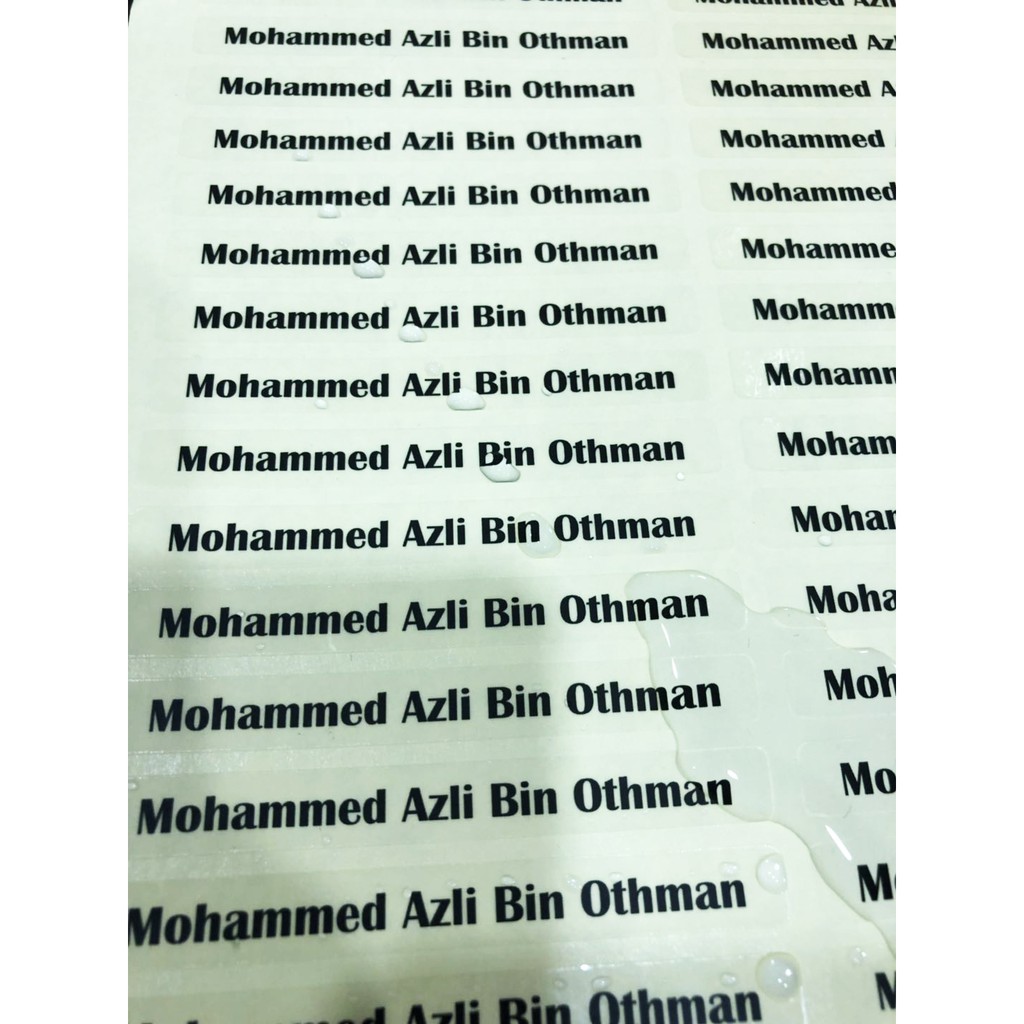 Mohammed Azli Bin Othman Mohammed Az
Mohammed Azli Bin Othman Mohammed A
Mohammed Azli Bin Othman Mohammed
Mohammed Azli Bin Othman Mohammed
Mohammed Azli Bin Othman Mohamme
Mohammed Azli Bin Othman Mohamm
Mohammed Azli Bin Othman Mohamm
Mohammed Azli Bin Othman Moham
Mohammed Azli Bin Othman Mohar
Mohammed Azli Bin Othman Moha
Mohammed Azli Bin Othman Moh
Mohammed Azli Bin Othman Mo
Mohammed Azli Bin Othman M
Mohammed Azli Bin Othman